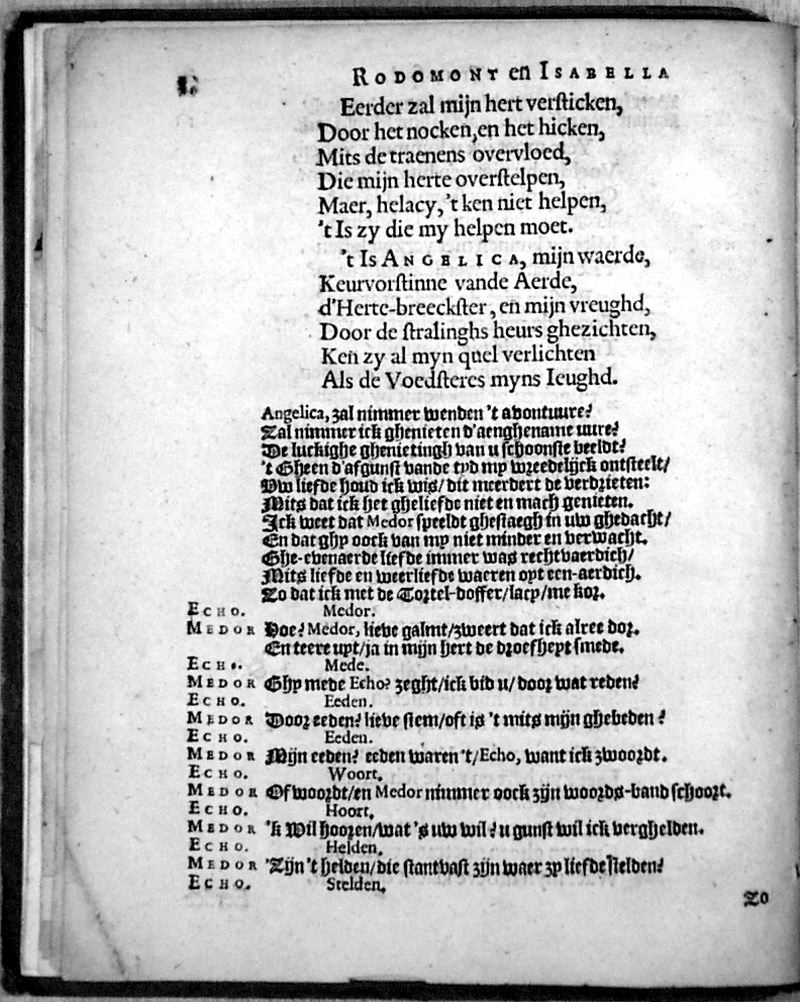 RODOMONT en ISABELLA
Eerder zal mijn hert versticken,
Door het nocken, en het hicken,
Mits de traenens overvloed,
Die mijn herte overstelpen,
Maer, helacy, 't ken niet helpen,
't Is zy die my helpen moet.
't Is ANGELICA, mijn waerde,
Keurvorstinne vande Aerde,
d'Herte-breeckster, en mijn vreughd,
Door de stralinghs heurs ghezichten,
Ken zy al myn quel verlichten
Als de Voedsteres myns Ieughd.
Angelica, zal nimmer wenden 't avontuure?
Zal nimmer ick ghenieten d'aenghename uure?
De luckighe ghenietingh van u schoonste beeldt?
't Gheen d'afgunst vande tyd my wreedelijck ontsteelt/
Uw liefde houd ick wis/ dit meerdert de verdrieten:
Mits dat ick het gheliefde niet en mach genieten.
Ick weet dat Medor speeldt ghestaegh in uw ghedacht/
En dat ghy oock van my niet minder en verwacht.
Ghe-evenaerde liefde immer was rechtvaerdich/
Mits liefde en weerliefde waeren opt een-aerdich.
Zo dat ick met de Tortel-doffer/ lacy/ me kor.
ECHO. Medor.
MEDOR Hoe? Medor, lieve galmt/ zweert dat ick alree dor.
En teere upt/ ja in mijn hert de droefheyt smede.
ECHO. Mede.
MEDOR Ghy mede Echo? zeght/ ick bid u/ door wat reden?
ECHO. Eeden.
MEDOR Door eeden? lieve stem/ oft is 't mits mijn ghebeden?
ECHO. Eeden.
MEDOR Mijn eeden? eeden waren 't/ Echo, want ick zwoordt.
ECHO. Woort.
MEDOR Of woordt/ en Medor nimmer oock zijn woords-band schoort.
ECHO. Hoort.
MEDOR 'k Wil hooren/ wat 's uw wil? u gunst wil ick verghelden.
ECHO. Helden.
MEDOR 'Zijn 't helden/ die stantvast zijn waer zy liefde stelden?
ECHO. Stelden.
Zo